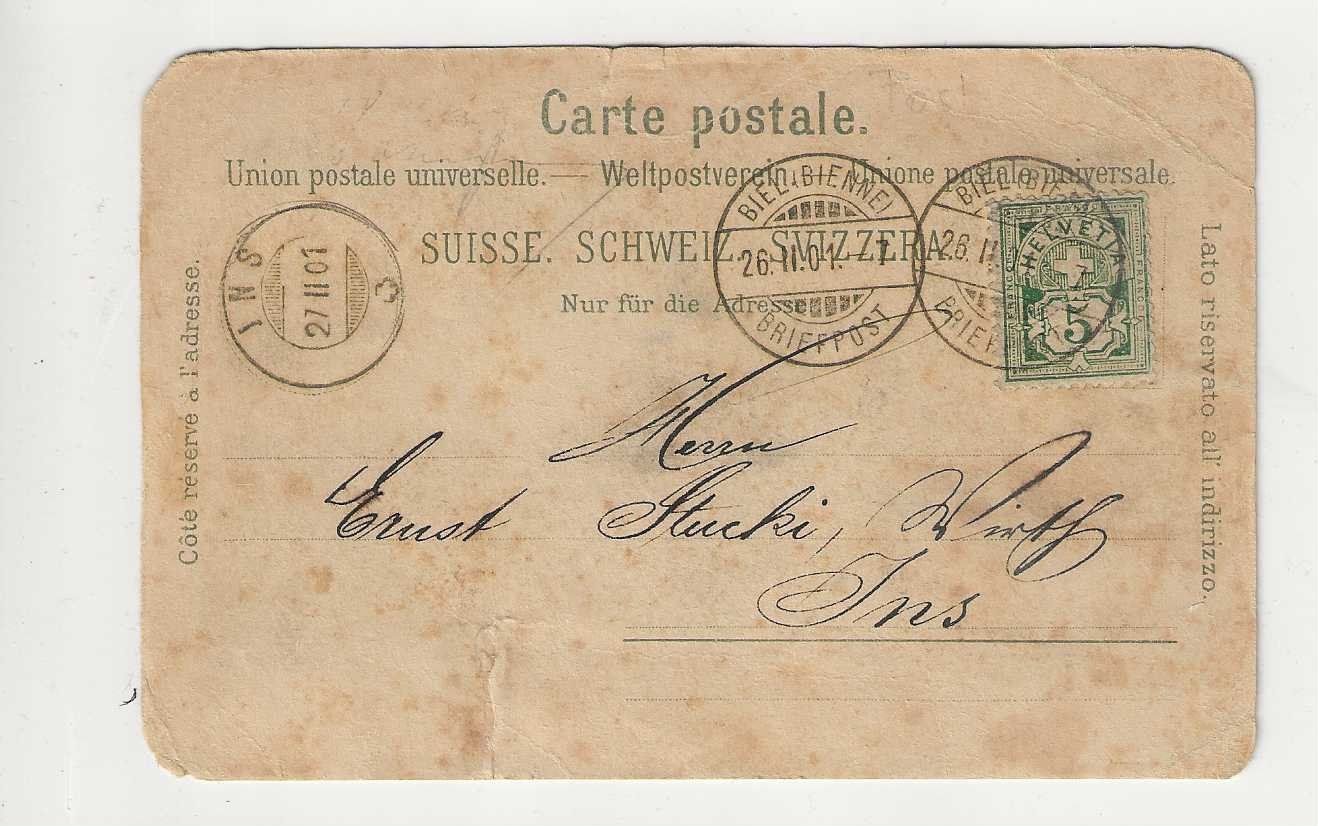 Carte postale.
Union postale universelle. — Weltpostverein. — Unione postale universale.
SUISSE. SCHWEIZ. SVIZZERA.
Nur für die Adresse.
Côté réservé à l'adresse.
Lato riservato all' indirizzo.
INS
27 II 01
BIEL (BIENNE)
26.II.01. 7
BRIEFPOST
BIEL (BIE
26.II
BRIEF
FRANCO
HELVETIA
FRANCO
FRANCO
5
Herrn
Ernst Stucki, Wirth
Ins